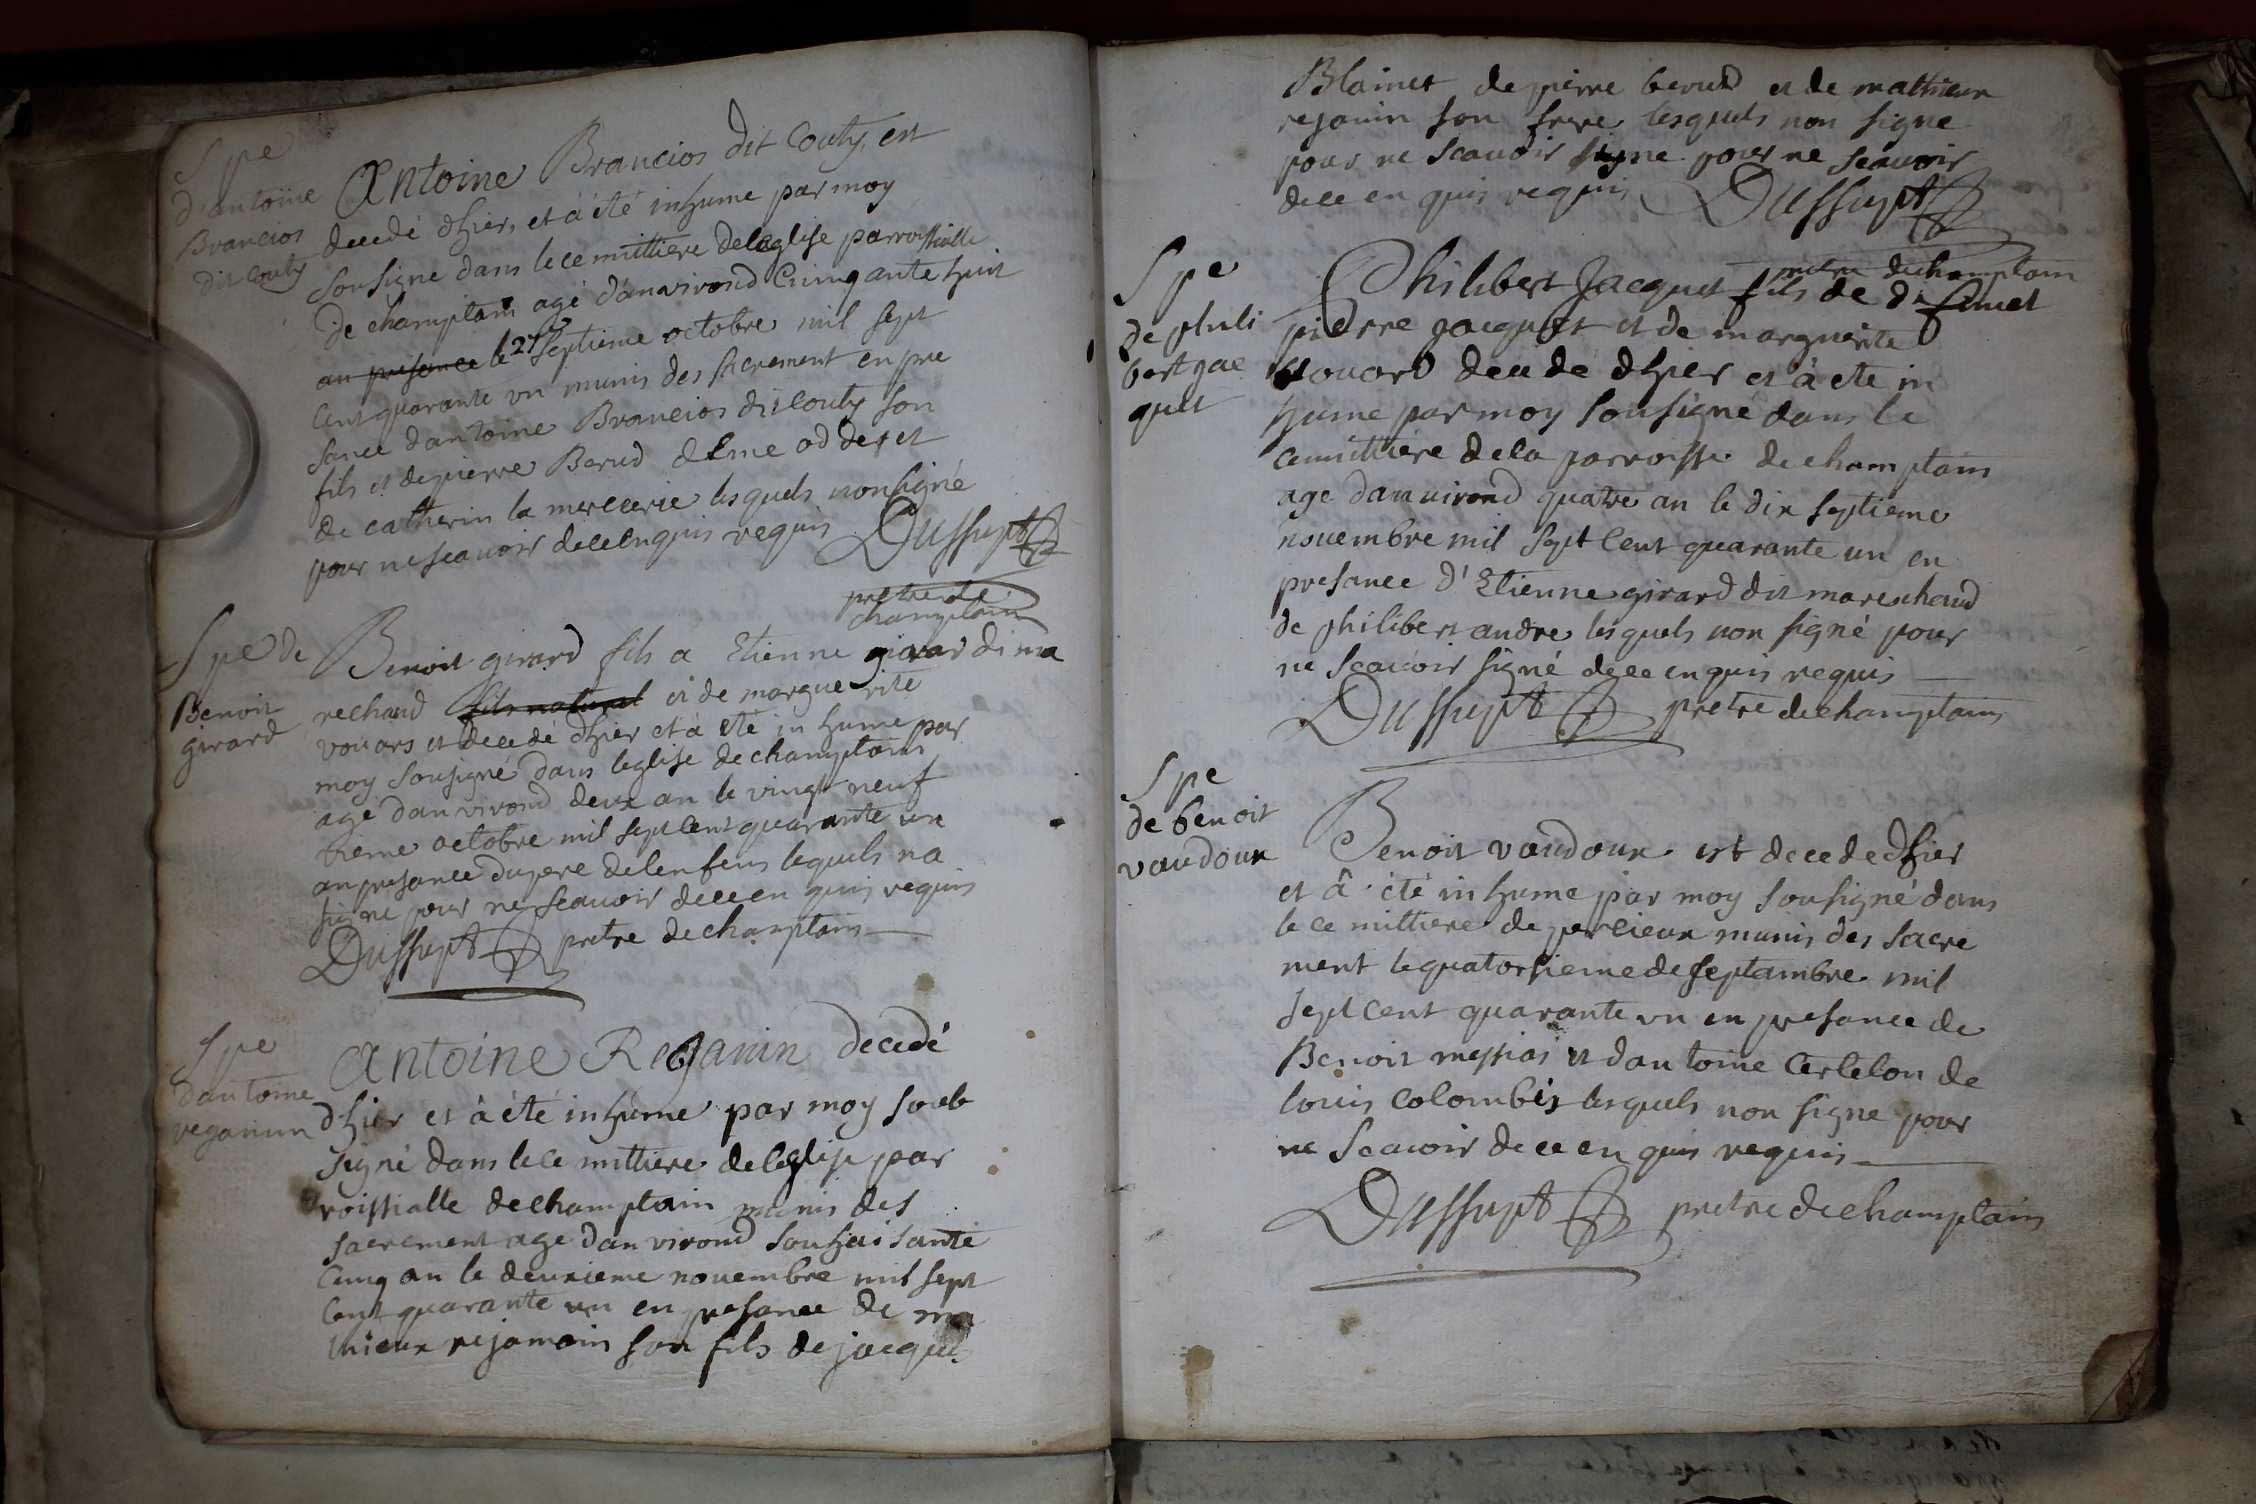 Spe
d'antoine
Brancios
dit couty
Antoine Brancios dit Couty, est
decedé dhier, et à été inhume par moy
sousigne dans le ce mittiere deleglise parroissialle
de champtain agé d'anvirond Cinnqante huit
an presance le 27 septieme octobre mil sept
Cent quarante vn munis des sacrement en pre
sance dantoine Brancios dit Couty son
fils et de pierre Berud
de catherin la mercerie lesquels nonsigné
pour ne scauoir dece enquis requis Dussupt
pretre de
champtain
Spe de
Benoit
girard
Benoit girard fils a Etienne girar di ma
rechaud fils natural et de margue rite
vouars et decedé dhier et à eté in hume par
moy sousigné dans leglise de champtains
agé danvirond deux an le vingt neuf
vieme octobre mil sept cent quarante un
an presance du pere de lenfens lequels na
signe pour ne scauoir dece en quis requis
Dussupt pretre de champtain
Spe
dantoine
reganin
Antoine Reganin decedé
dhier et à été inhume par moy soub
signé dans le ce mittiere de leglise par
roissialle de champtain munis des
sacrement age danvirond souhaisante
Cinq an le deuxieme nouembre mil sept
Cent quarante un en presance de ma
thieux rejamoin son fils de jacque
Blainet de pierre berud et de mathieux
rejanin son frere lesquels non signe
pour ne scauoir signe pour ne scauoir
dece en quis requis Dussupt
pretre dechamptain
Spe
de phili
bert jac
quet
Philibert Jacquet fils de
pierre jacquet et de marguerite
vouard decedé dhier et à ete in
hume par moy sousigné dans le
cemittiere dela parroisse de champtain
age danvirond quatre an le dix septieme
nouembre mil sept Cent quarante un en
presance d'Etienne girard dit marechaud
de philibert andre lesquels non signé pour
ne scauoir signé dece enquis requis
Dussupt pretre de champtains
Spe
de benoit
vaudoux
Benoit vaudoux est decede dhier
et â été inhume par moy sousigné dans
le ce mittiere de percieux munis des sacre
ment le quatorsieme de septambre mil
sept Cent quarante vn en presance de
Benoit messias et dantoine Cerlelon de
louis Colombis lesquels non signe pour
ne scauoir dece en quis requis
Dussupt pretre de champtains